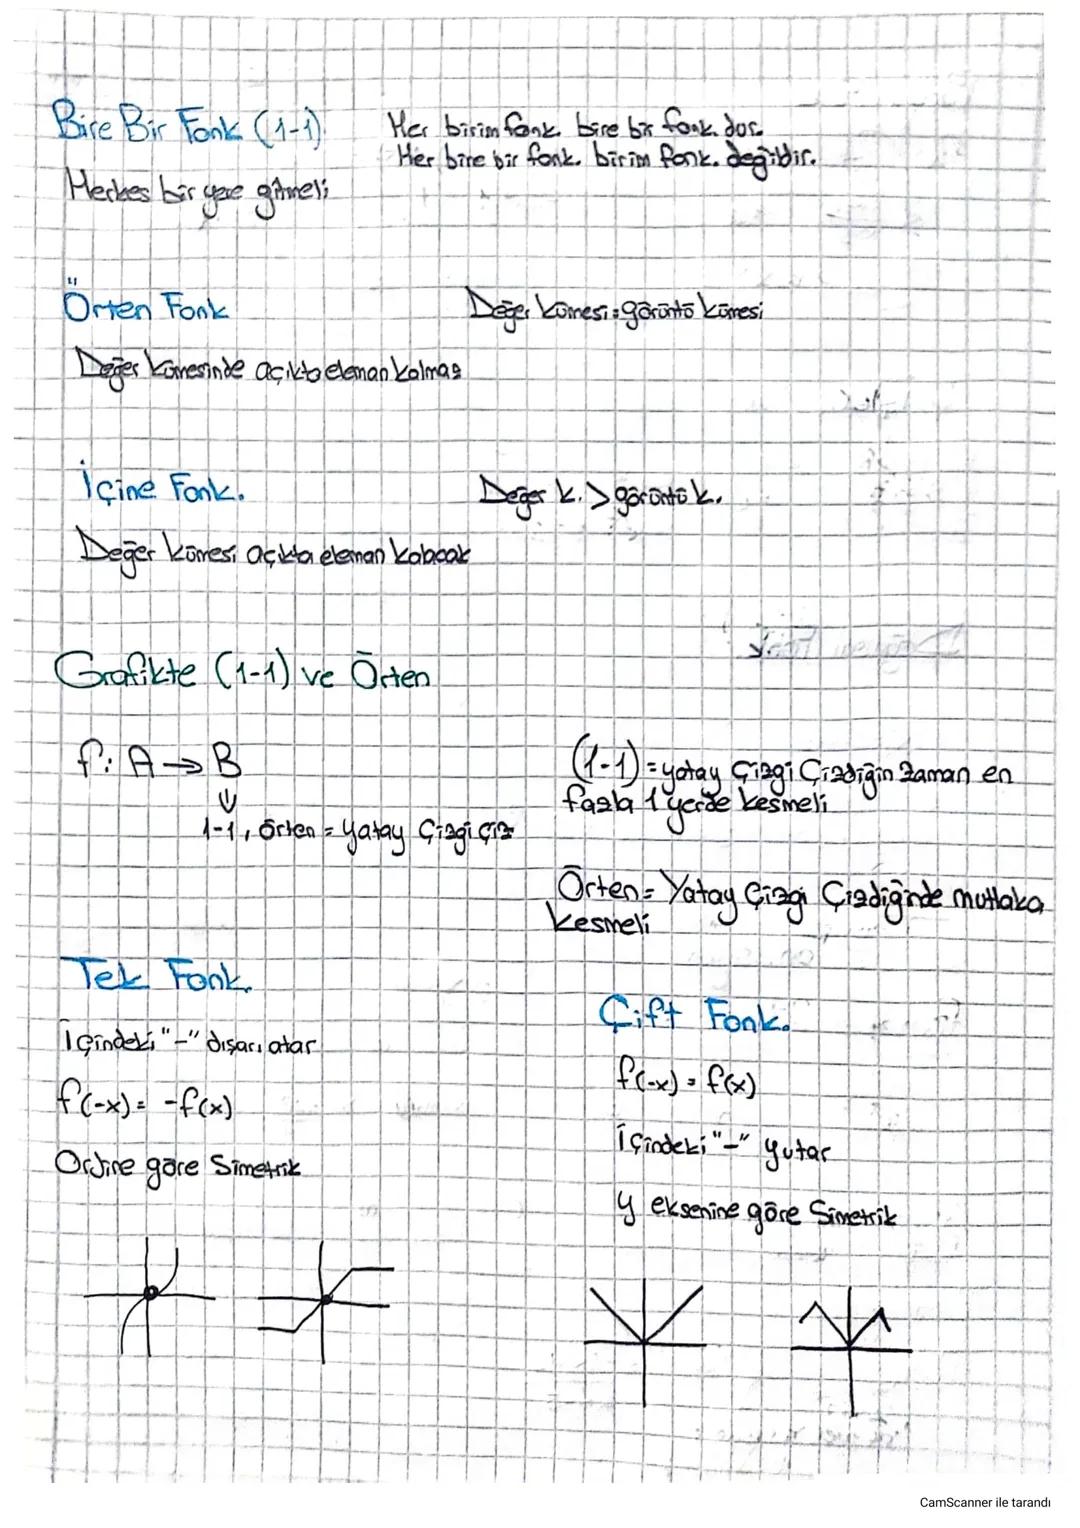 Bire Bir Fonk (1-1)
Her birim fonk. bire bir fonk. dur.
Her bire bir fonk. birim fonk. değildir.
Herkes bir yere gitmeli
Örten Fonk
Değer kümesi = görüntü kümesi
Değer kümesinde açıkta eleman kalmaz
İçine Fonk.
Değer k. > görüntü k.
Değer kümesi açıkta eleman kalacak
Grafikte (1-1) ve Örten
f: A → B
↓
1-1, örten = yatay Çizgi çiz
(1-1) = yatay Çizgi Çizdiğin zaman en
fazla 1 yerde kesmeli
Örten = Yatay Çizgi Çizdiğinde mutlaka
kesmeli
Tek Fonk.
İçindeki "-" dışarı atar
f(-x) = -f(x)
Orjine göre Simetrik
Çift Fonk.
f(-x) = f(x)
İçindeki "-" yutar
y eksenine göre Simetrik
CamScanner ile tarandı